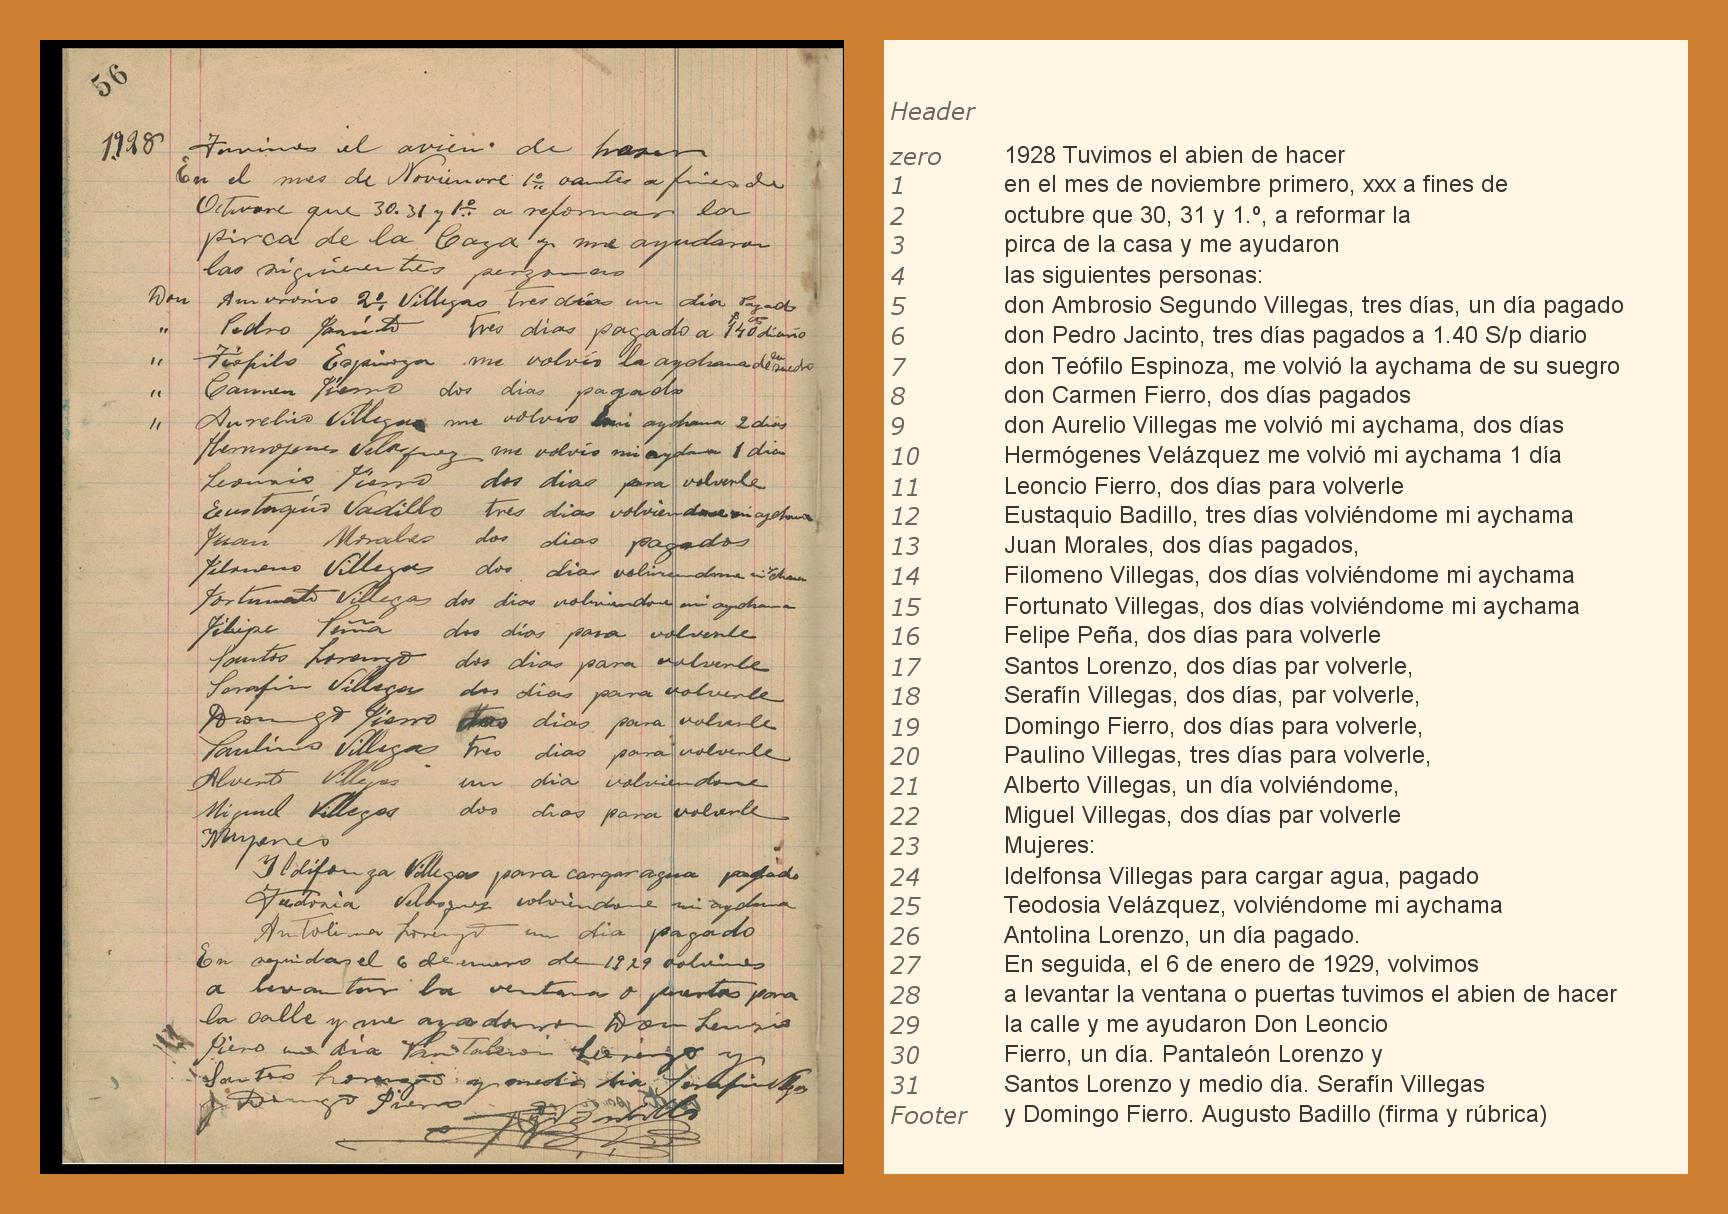 56
1928 Tuvimos el avien de haser
En el mes de Noviemvre 1º a fines de
Octuvre que 30. 31 y 1º a reformar la
pirca de la Caza y me ayudaron
las siguientes perzonas
Don Amvrosio 2º Villegas tres días un día Pagado
" Pedro Jasinto tres dias pagado a 140 diario
" Tiofilo Espinoza me volvio la aychama de su suedro
" Carmen Fierro dos dias pagado
" Aurelio Villegas me volvio mi aychama 2 dias
Hermojenes Velasquez me volvio mi aychama 1 dia
Leonsio Fierro dos dias para volverle
Eustaquio Vadillo tres dias volviendome mi aychama
Juan Morales dos dias pagados
Filomeno Villegas dos dias volviendome mi aychama
Fortunato Villegas dos dias volviendome mi aychama
Filipe Peña dos días para volverle
Santos Lorenzo dos dias para volverle
Serafin Villegas dos dias para volverle
Domingo Fierro dos dias para volverle
Paulino Villegas tres dias para volverle
Alverto Villegas un dia volviendome
Miguel Villegas dos dias para volverle
Mujeres
Yldifonza Villegas para cargar agua pagado
Velasquez volviendome mi aychama
Antolina Lorenzo un dia pagado
En seguidas el 6 de enero de 1929 volvimos
a levantar la ventana o puertas para
la calle y me ayudaron Don Leonsio
Fiero un dia Pantaleon Lorenzo y
Santos Lorenzo y medio dia Serafin Villegas
y Domingo Fierro
Header
zero 1928 Tuvimos el abien de hacer
1 en el mes de noviembre primero, xxx a fines de
2 octubre que 30, 31 y 1.º, a reformar la
3 pirca de la casa y me ayudaron
4 las siguientes personas:
5 don Ambrosio Segundo Villegas, tres días, un día pagado
6 don Pedro Jacinto, tres días pagados a 1.40 S/p diario
7 don Teófilo Espinoza, me volvió la aychama de su suegro
8 don Carmen Fierro, dos días pagados
9 don Aurelio Villegas me volvió mi aychama, dos días
10 Hermógenes Velázquez me volvió mi aychama 1 día
11 Leoncio Fierro, dos días para volverle
12 Eustaquio Badillo, tres días volviéndome mi aychama
13 Juan Morales, dos días pagados,
14 Filomeno Villegas, dos días volviéndome mi aychama
15 Fortunato Villegas, dos días volviéndome mi aychama
16 Felipe Peña, dos días para volverle
17 Santos Lorenzo, dos días par volverle,
18 Serafín Villegas, dos días, par volverle,
19 Domingo Fierro, dos días para volverle,
20 Paulino Villegas, tres días para volverle,
21 Alberto Villegas, un día volviéndome,
22 Miguel Villegas, dos días par volverle
23 Mujeres:
24 Idelfonsa Villegas para cargar agua, pagado
25 Teodosia Velázquez, volviéndome mi aychama
26 Antolina Lorenzo, un día pagado.
27 En seguida, el 6 de enero de 1929, volvimos
28 a levantar la ventana o puertas tuvimos el abien de hacer
29 la calle y me ayudaron Don Leoncio
30 Fierro, un día. Pantaleón Lorenzo y
31 Santos Lorenzo y medio día. Serafín Villegas
Footer y Domingo Fierro. Augusto Badillo (firma y rúbrica)